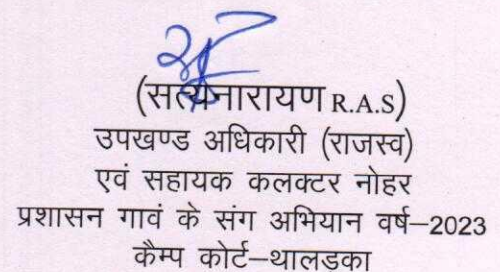 (सत्यनारायण R.A.S)
उपखण्ड अधिकारी (राजस्व)
एवं सहायक कलक्टर नोहर
प्रशासन गावं के संग अभियान वर्ष–2023
कैम्प कोर्ट–थालड़का